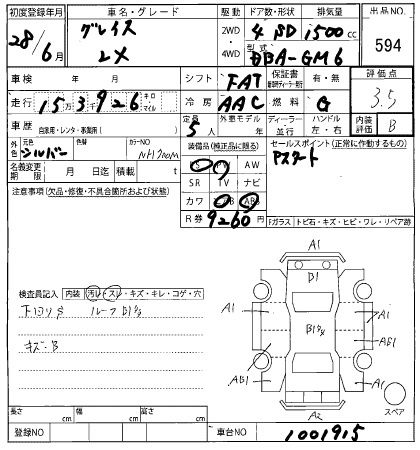 初度登録年月 車名・グレード 駆動 ドア数・形状 排気量 出品NO.
28/6月 グレイス LX 2WD・4WD 4 SD 1500cc 594
型式 DBA-GM6
車検 年 月 シフト FAT 保証書 有・無 評価点 3.5
走行 15万3926 キロ マイル 冷房 AAC 燃料 G
車歴 自家用・レンタ・事業用( ) 定員 5人 外車モデル 年 ディーラー 並行 ハンドル 左・右 内装評価 B
外色 元色 シルバー 色替 カラーNO NH700M
名義変更期限 月 日迄 積載 t
装備品(純正品に限る)
PS PW AW
SR TV ナビ
カワ AB ABS
R券 9260円
セールスポイント(正常に作動するもの)
Pスタート
注意事項(欠品・修復・不具合箇所および状態)
Fガラス トビ石・キズ・ヒビ・ワレ・リペア跡
検査員記入 内装 汚レ・スレ・キズ・キレ・コゲ・穴
下回りS ルーフB
キズ・B
A1
B1
A1 A1
B1
AB1
AB1 A1
A2
スペア
長さ cm 幅 cm 高さ cm
登録NO 車台NO 1001915